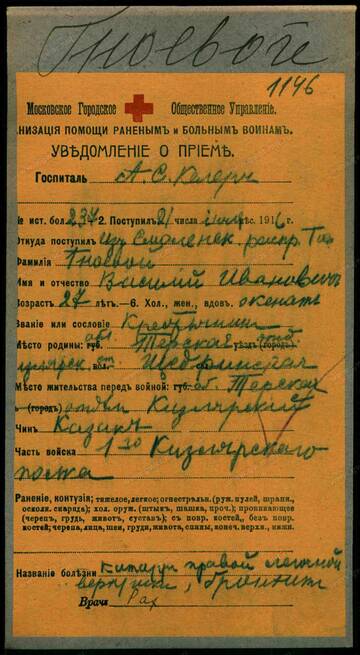 Гноевой
1146
Московское Городское Общественное Управленіе.
НИЗАЦІЯ ПОМОЩИ РАНЕНЫМЪ и БОЛЬНЫМЪ ВОИНАМЪ.
УВѢДОМЛЕНІЕ О ПРІЕМѢ.
Госпиталь А. С. Келеръ
№ ист. бол. 237 2. Поступилъ 21 числа 191 г.
Откуда поступилъ изъ Смоленск. распр.
Фамилія Гноевой
Имя и отчество Василій Ивановичъ
Возрастъ 27 лѣтъ.—6. Хол., жен., вдовъ. женатъ
Званіе или сословіе
Мѣсто родины: губ. обл Терская уѣздъ (городъ) отд
вол. ст. Щедринская
Мѣсто жительства передъ войной: губ. об. Терская
(городъ) отдѣл Кизлярскій
Чинъ Казакъ
Часть войска 1 Кизлярскаго
полка
Раненіе, контузія; тяжелое, легкое; огнестрѣльн. (руж. пулей, шрапн.,
осколк. снаряда); хол. оруж. (штыкъ, шашка, проч.); проникающее
(черепъ, грудь, животъ, суставъ); съ повр. костей, безъ повр.
костей; черепа, лица, шеи, груди, живота, спины, конеч. верхн., нижн.
Названіе болѣзни Катарръ правой легочной
верхушки, бронхит
Врачъ